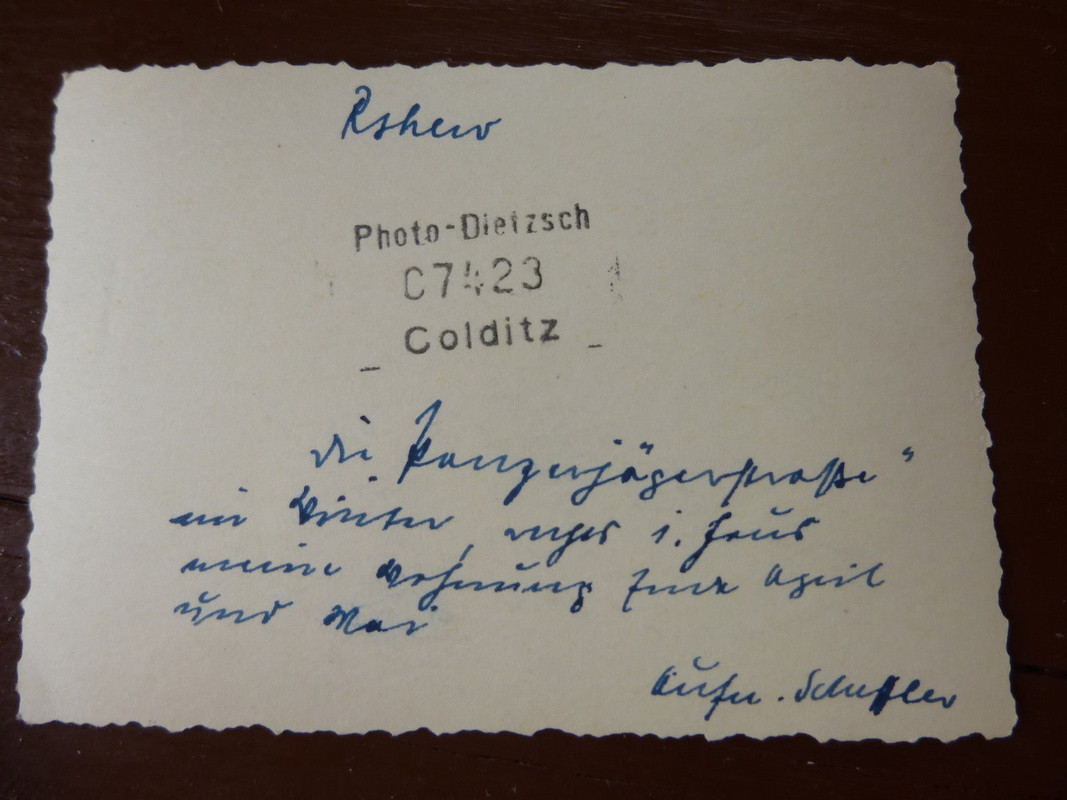 Rshew
Photo-Dietzsch
C7423
Colditz
die Panzerjägerstraße"
im Winter, rechts 1. Haus
meine Wohnung Ende April
und Mai
Aufn. Scheffler